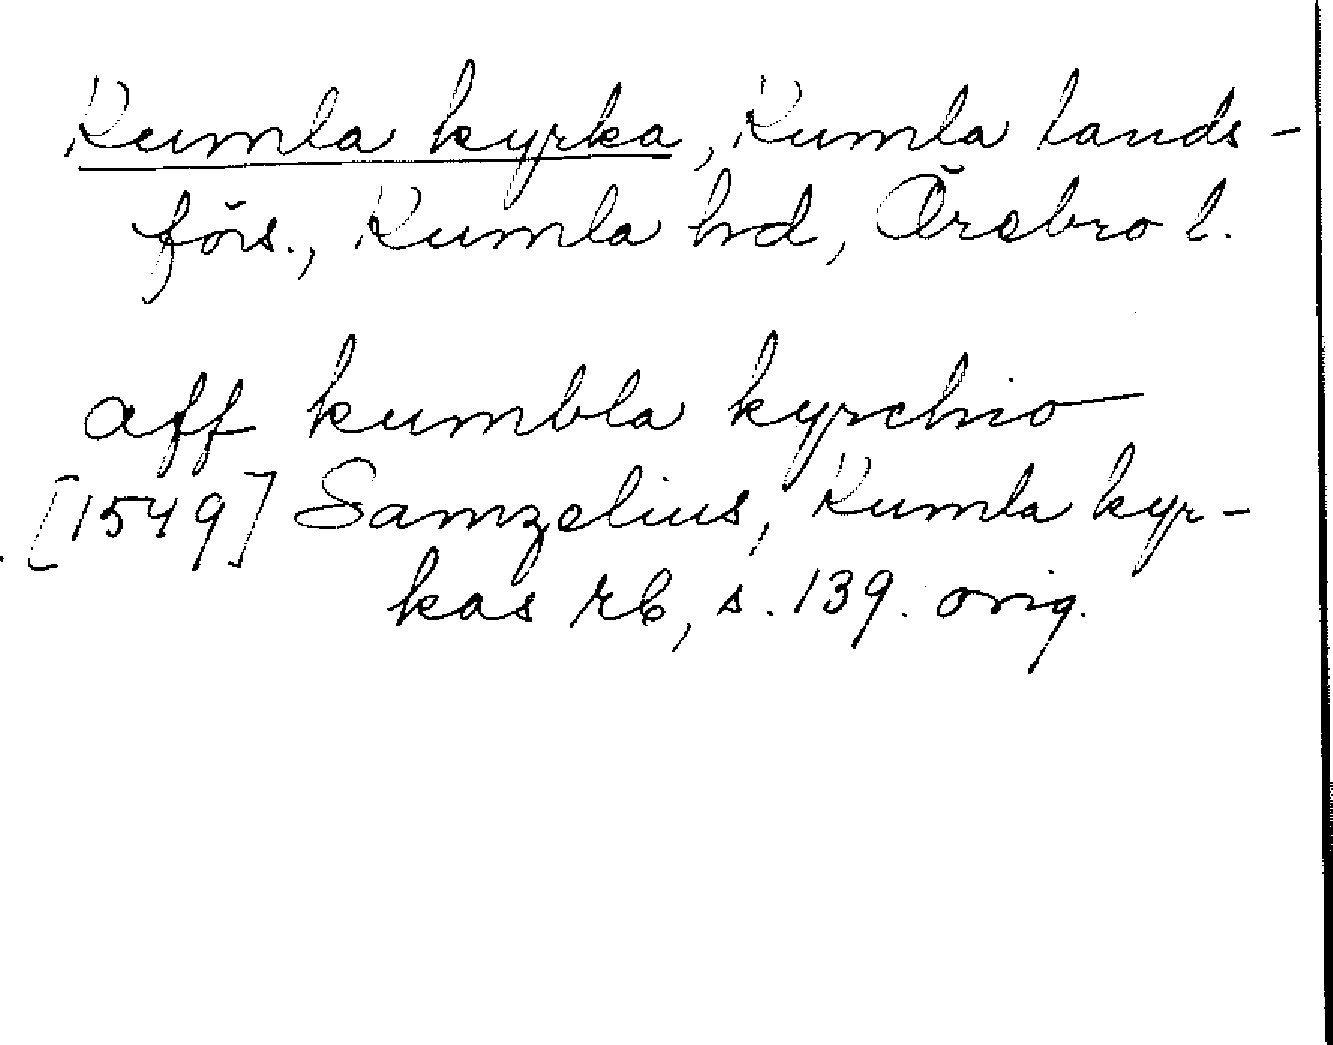 Kumla kyrka, Kumla lands-
förs., Kumla hd, Örebro l.
aff kumbla kyrchio
[1549] Samzelius, Kumla kyr-
kas rb, s. 139. orig.